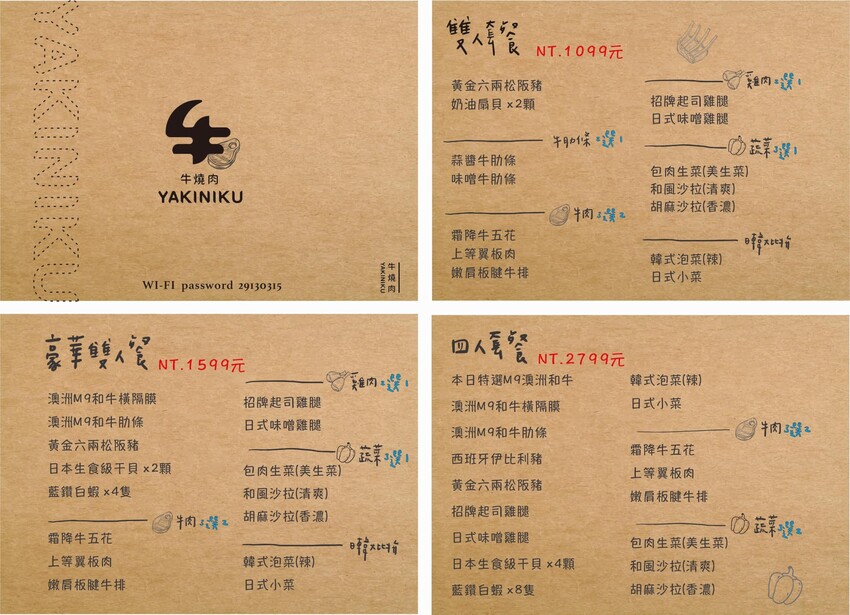 YAKINIKU
牛燒肉
YAKINIKU
WI-FI password 29130315
牛燒肉
YAKINIKU
雙人套餐 NT.1099元
黃金六兩松阪豬
奶油扇貝 x2顆
牛肋條 2選1
蒜醬牛肋條
味噌牛肋條
牛肉 3選2
霜降牛五花
上等翼板肉
嫩肩板腱牛排
雞肉 2選1
招牌起司雞腿
日式味噌雞腿
蔬菜 3選1
包肉生菜(美生菜)
和風沙拉(清爽)
胡麻沙拉(香濃)
日韓大比拚
韓式泡菜(辣)
日式小菜
豪華雙人餐 NT.1599元
澳洲M9和牛橫隔膜
澳洲M9和牛肋條
黃金六兩松阪豬
日本生食級干貝 x2顆
藍鑽白蝦 x4隻
牛肉 3選2
霜降牛五花
上等翼板肉
嫩肩板腱牛排
雞肉 2選1
招牌起司雞腿
日式味噌雞腿
蔬菜 3選1
包肉生菜(美生菜)
和風沙拉(清爽)
胡麻沙拉(香濃)
日韓大比拚
韓式泡菜(辣)
日式小菜
四人套餐 NT.2799元
本日特選M9澳洲和牛
澳洲M9和牛橫隔膜
澳洲M9和牛肋條
西班牙伊比利豬
黃金六兩松阪豬
招牌起司雞腿
日式味噌雞腿
日本生食級干貝 x4顆
藍鑽白蝦 x8隻
韓式泡菜(辣)
日式小菜
牛肉 3選2
霜降牛五花
上等翼板肉
嫩肩板腱牛排
蔬菜 3選2
包肉生菜(美生菜)
和風沙拉(清爽)
胡麻沙拉(香濃)